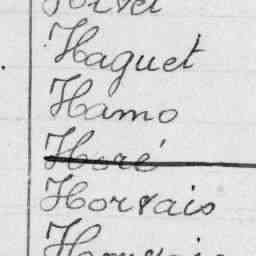 Haguet
Hamo
Horé
Horvais